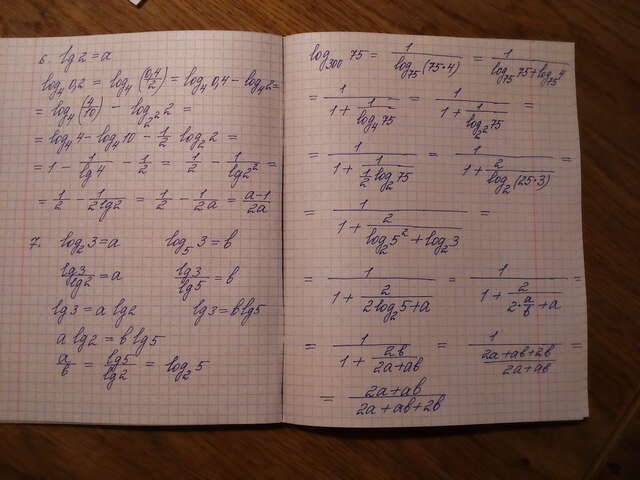 6. lg2 = a
log₄0,2 = log₄(0,4/2) = log₄0,4 - log₄2 =
= log₄(4/10) - log_{2²}2 =
= log₄4 - log₄10 - 1/2 log₂2 =
= 1 - 1/lg4 - 1/2 = 1/2 - 1/lg2² =
= 1/2 - 1/2lg2 = 1/2 - 1/2a = a-1/2a
7. log₂3 = a log₅3 = b
lg3/lg2 = a lg3/lg5 = b
lg3 = a lg2 lg3 = b lg5
a lg2 = b lg5
a/b = lg5/lg2 = log₂5
log₃₀₀75 = 1/log₇₅(75·4) = 1/log₇₅75+log₇₅4
= 1/(1 + 1/log₄75) = 1/(1 + 1/log_{2²}75) =
= 1/(1 + 1/(1/2 log₂75)) = 1/(1 + 2/log₂(25·3)) =
= 1/(1 + 2/(log₂5² + log₂3)) =
= 1/(1 + 2/(2log₂5+a)) = 1/(1 + 2/(2·a/b+a)) =
= 1/(1 + 2b/(2a+ab)) = 1/((2a+ab+2b)/(2a+ab))
= (2a+ab)/(2a+ab+2b)